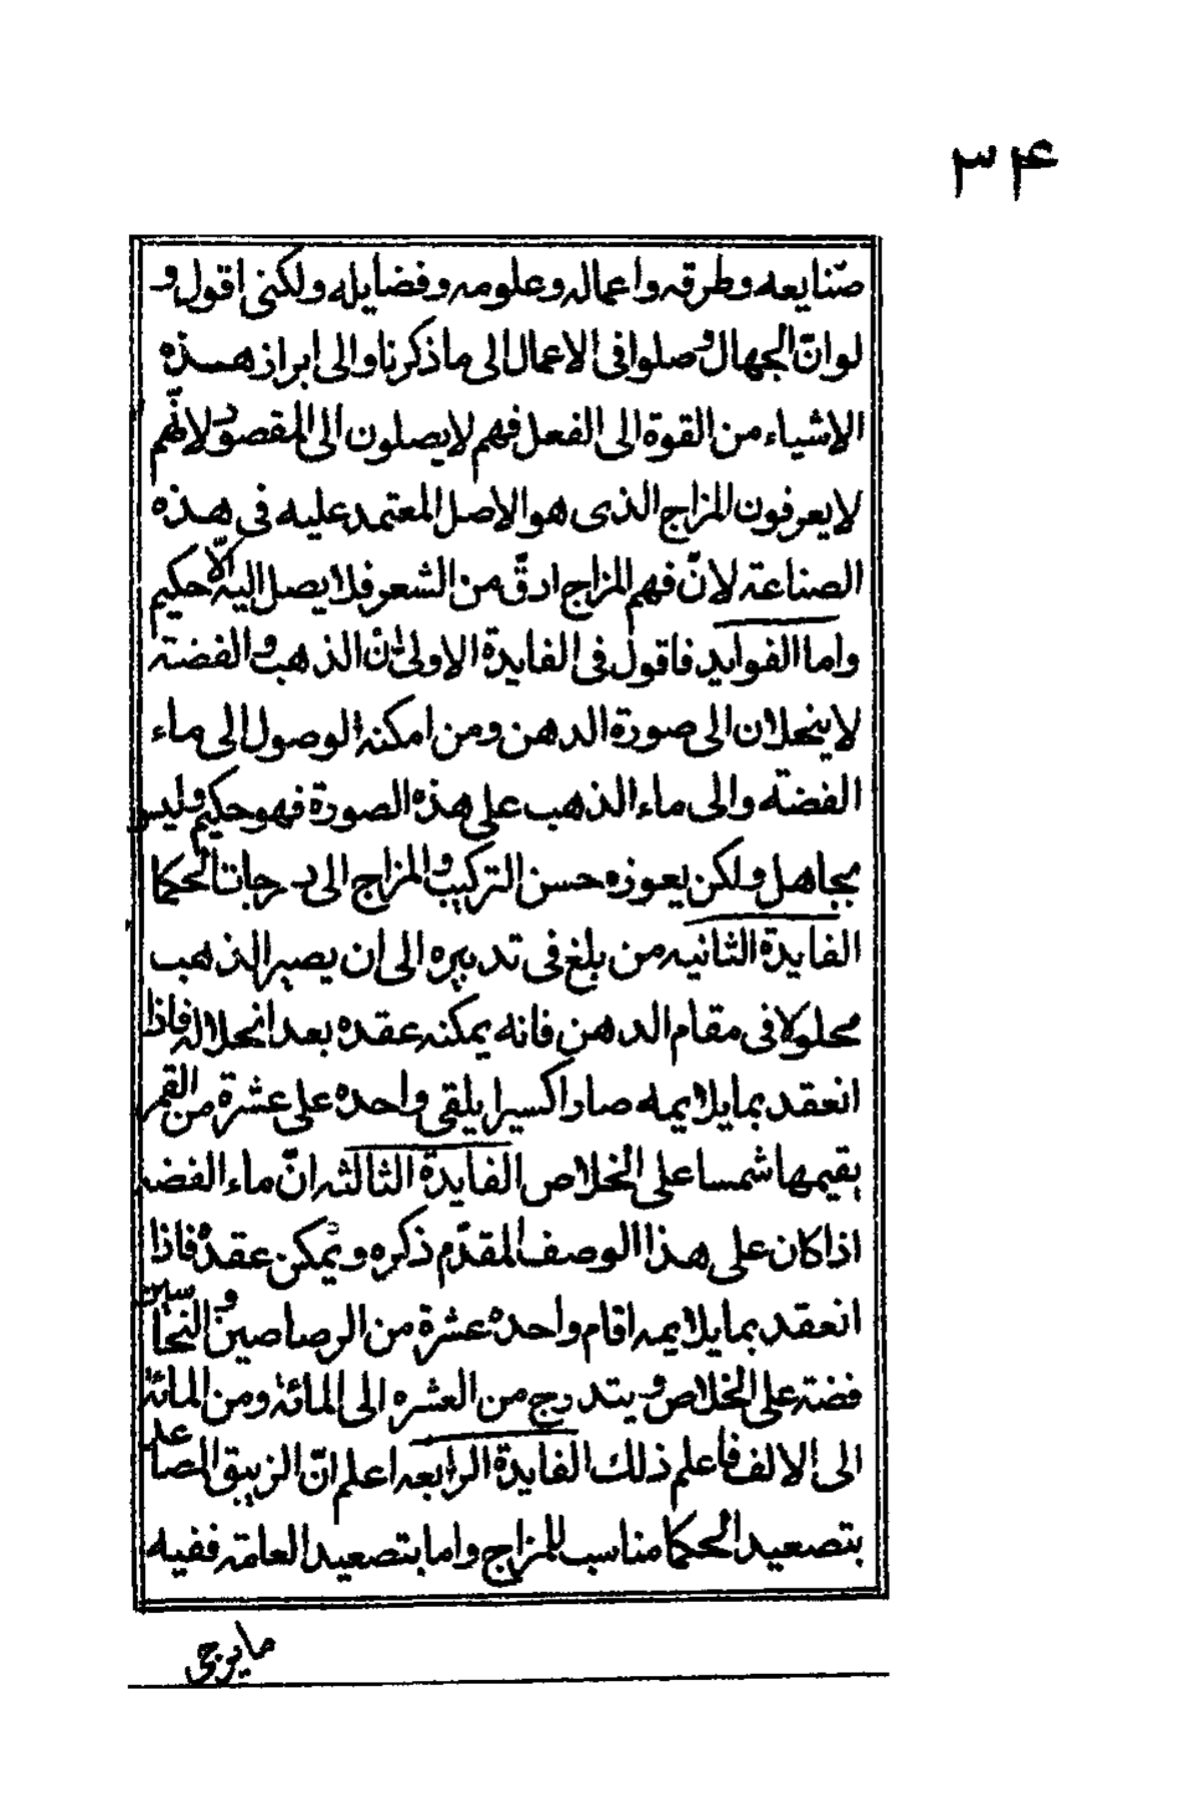 ۳۴
صنّايعه وطرقه واعماله وعلومه وفضايله ولكنى اقول و
لو انّ الجهال وصلوا فى الاعمال الى ما ذكرنا والى ابراز هذه
الاشياء من القوة الى الفعل فهم لا يصلون الى المقصود لانّهم
لا يعرفون المزاج الذى هو الاصل المعتمد عليه فى هذه
الصناعة لانّ فهم المزاج ادقّ من الشعر فلا يصل اليه الّا حكيم
واما الفوايد فاقول فى الفايدة الاولى انّ الذهب والفضة
لا ينحلان الى صورة الدهن ومن امكنه الوصول الى ماء
الفضة والى ماء الذهب على هذه الصورة فهو حكيم وليس
بجاهل ولكن يعوزه حسن التركيب والمزاج الى درجات الحكما
الفايدة الثانيه من بلغ فى تدبيره الى ان يصير الذهب
محلولا فى مقام الدهن فانه يمكنه عقده بعد انحلاله فاذا
انعقد بما يلايمه صار اكسيرا يلقى واحده على عشرة من القمر
يقيمها شمسا على الخلاص الفايدة الثالثه انّ ماء الفضه
اذا كان على هذا الوصف المقدّم ذكره ويمكن عقده فاذا
انعقد بما يلايمه اقام واحده عشرة من الرصاصين والنحاسين
فضة على الخلاص ويتدرج من العشره الى المائة ومن المائة
الى الالف فاعلم ذلك الفايدة الرابعه اعلم انّ الزيبق المصاعد
بتصعيد الحكما مناسب للمزاج واما بتصعيد العامة ففيه
ما يرجى